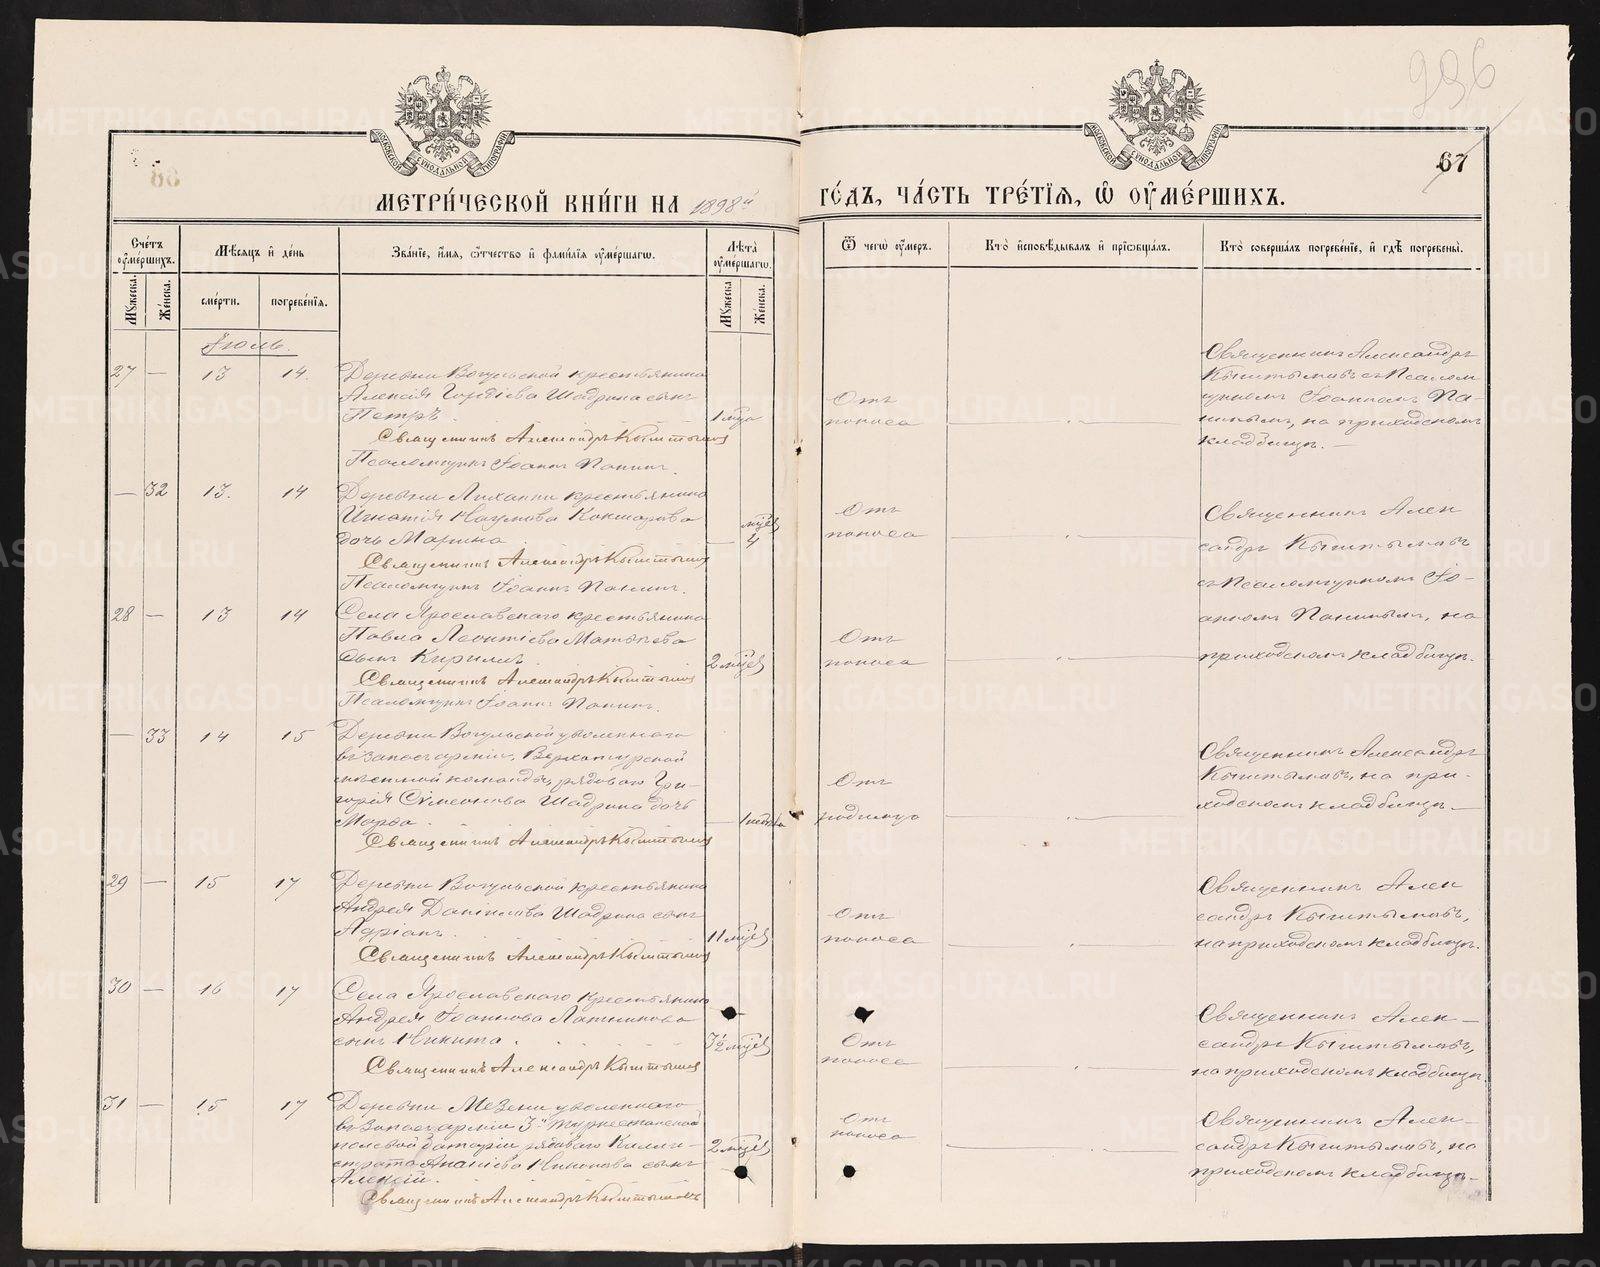 296
67
МОСКОВСКОЙ СУНОДАЛЬНОЙ ТИПОГРАФІИ
МОСКОВСКОЙ СУНОДАЛЬНОЙ ТИПОГРАФІИ
МЕТРИ́ЧЕСКОЙ КНИ́ГИ НА 1898й ГО́ДЪ, ЧА́СТЬ ТРЕ́ТІѦ, Ѽ ОУ҆МЕ́РШИХЪ.
Сче́тъ оу҆ме́ршихъ.
Мѣ́сѧцъ и҆ де́нь
Зва́нїе, и҆́мѧ, ѻ҆́тчество и҆ фами́лїѧ оу҆ме́ршагѡ.
Лѣ̑та оу҆ме́ршагѡ.
Ѿ чегѡ̀ оу҆́меръ.
Кто̀ и҆сповѣ́дывалъ и҆ прїѻбща́лъ.
Кто̀ соверша́лъ погребе́нїе, и҆ гдѣ̀ погребены̀.
Мꙋ́жеска.
Же́нска.
сме́рти.
погребе́нїѧ.
Мꙋ́жеска
Же́нска.
Іюль.
27 — 13 14. Деревни Вогульской крестьянина
Алексія Гордіева Шадрина сынъ
Петръ. 1 мца
Священникъ Александръ Кыштымовъ
Псаломщикъ Іоаннъ Панинъ.
Отъ
поноса
Священникъ Александръ
Кыштымовъ съ Псалом
щикомъ Іоанномъ Па-
нинымъ, на приходскомъ
кладбищѣ.—
— 32 13. 14 Деревни крестьянина
Игнатія Наумова Кокшарова
дочь Марина — мцев 4
Священникъ Александръ Кыштымовъ
Псаломщикъ Іоаннъ Панинъ.
Отъ
поноса
Священникъ Алек
сандръ Кыштымовъ
съ Псаломщикомъ Іо-
анномъ Панинымъ, на
приходскомъ кладбищѣ.
28 — 13 14 Села Ярославскаго крестьянина
Павла Леонтіева Матвѣева
сынъ Кириллъ 2 мцев
Священникъ Александръ Кыштымовъ
Псаломщикъ Іоаннъ Панинъ.
Отъ
поноса
— 33 14 15 Деревни Вогульской уволеннаго
въ запасъ арміи, Верхотурской
мѣстной команды, рядового Гри-
горія Сѵмеонова Шадрина дочь
Марѳа. —
Священникъ Александръ Кыштымовъ
Отъ
родимца
Священникъ Александръ
Кыштымовъ, на при-
ходскомъ кладбищѣ.—
29 — 15 17 Деревни Вогульской крестьянина
Андрея Даніилова Шадрина сынъ
Адріанъ. 11 мцев
Священникъ Александръ Кыштымовъ
Отъ
поноса
Священникъ Алек
сандръ Кыштымовъ,
на приходскомъ кладбищѣ.
30 — 16 17 Села Ярославскаго крестьянина
Андрея Іоаннова Латникова
сынъ Никита. 3½ мцев
Священникъ Александръ Кыштымовъ
Отъ
поноса
Священникъ Алек-
сандръ Кыштымовъ,
на приходскомъ кладбищѣ.
31 — 15 17 Деревни Мезени уволеннаго
въ запасъ арміи 3й Туркестанской
полевой батареи рядоваго Калли-
страта Ананіева Никонова сынъ
Алексій. 2 мцев
Священникъ Александръ Кыштымовъ
Отъ
поноса
Священникъ Алек-
сандръ Кыштымовъ, на
приходскомъ кладбищѣ.—
METRIKI.GASO-URAL.RU